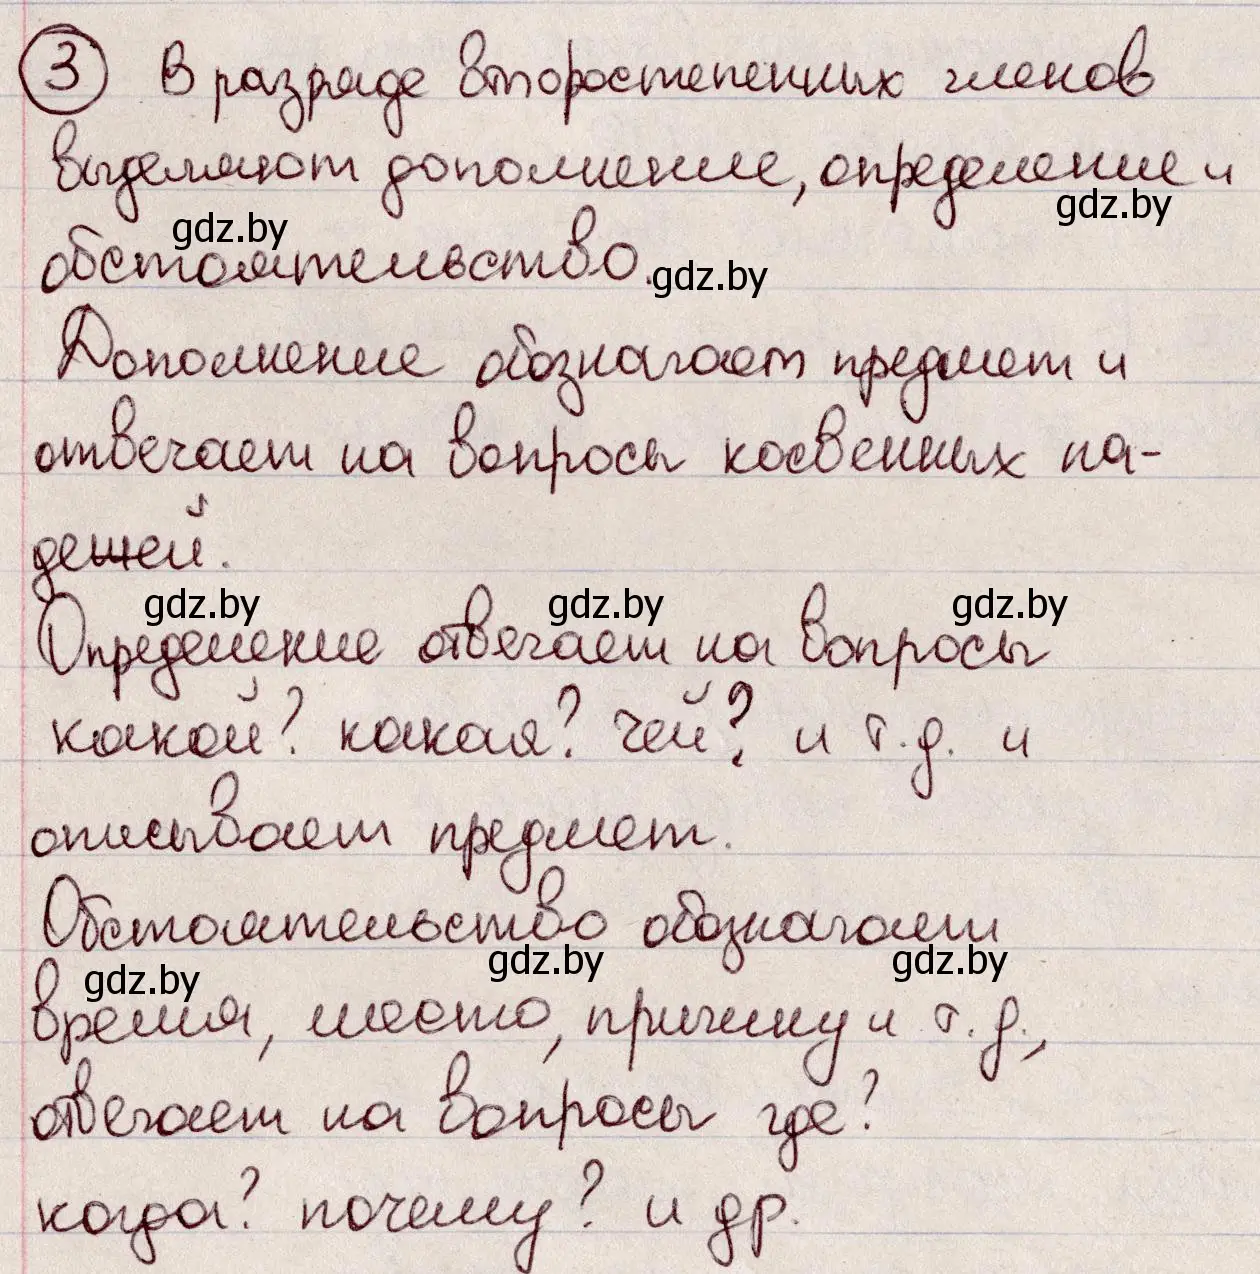 3 В разряде второстепенных членов
выделяют дополнение, определение и
gdz.by
gdz.by
обстоятельство.
gdz.by
Дополнение обозначает предмет и
отвечает на вопросы косвенных па-
дежей.
gdz.by gdz.by gdz.by
Определение отвечает на вопросы
какой? какая? чей? и т.д. и
описывает предмет.
Обстоятельство обозначает
gdz.by gdz.by gdz.by
время, место, причину и т.д.,
отвечает на вопросы где?
когда? почему? и др.